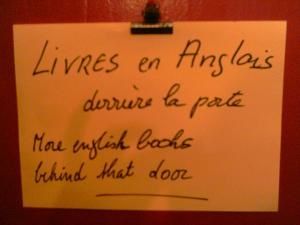 LIVRES en Anglais
derrière la porte
More english books
behind that door